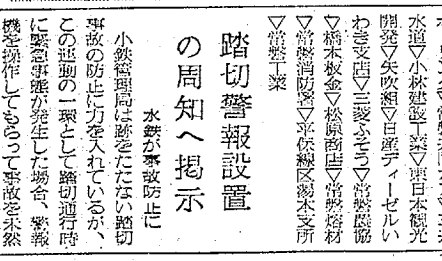 水道▽小林建設工業▽東日本観光
開発▽矢吹組▽日産ディーゼルい
わき支店▽三菱ふそう▽常磐農協
▽橋本板金▽松原商店▽常磐熔材
▽常磐消防署▽平保線区湯本支所
▽常磐工業
踏切警報設置
の周知へ掲示
水鉄が事故防止に
小鉄管理局は跡をたたない踏切
事故の防止に力を入れているが、
この運動の一環として踏切通行時
に緊急事態が発生した場合、警報
機を操作してもらって事故を未然